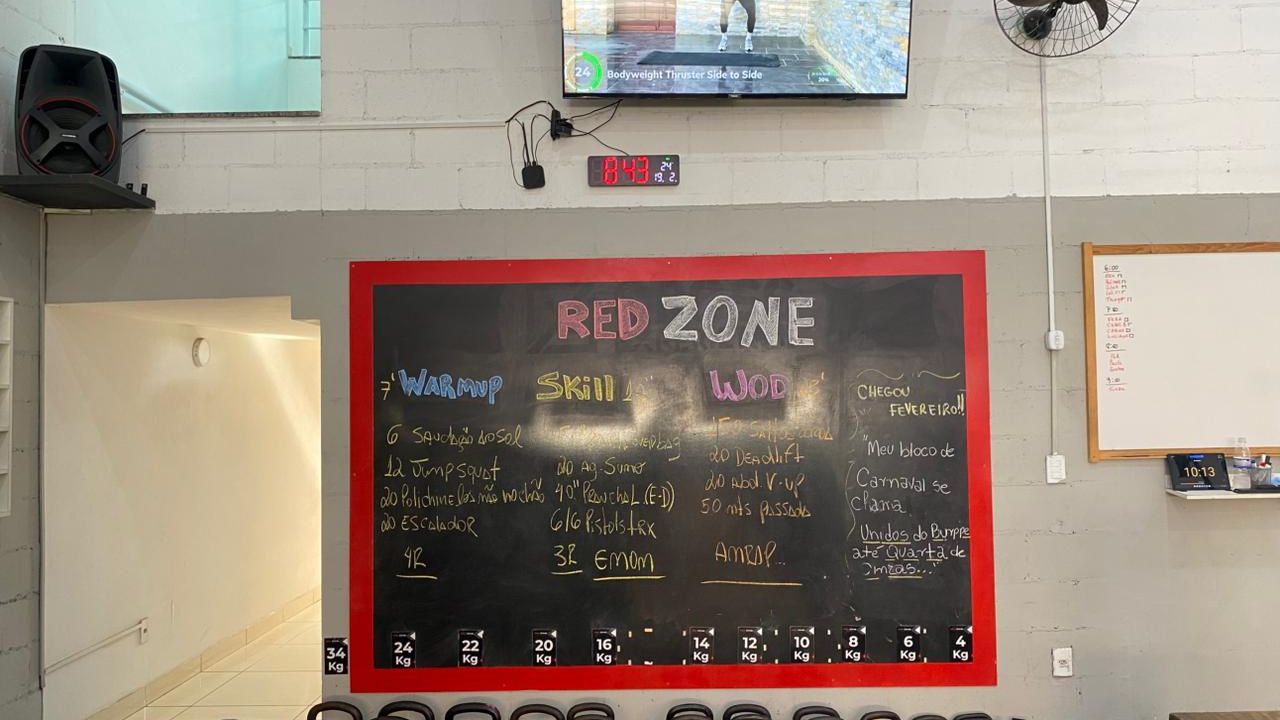 24
Bodyweight Thruster Side to Side
20%
8:43
24
19. 2.
RED ZONE
7' WARMUP
6 Saudação ao Sol
12 Jump squat
20 Polichinelos mão no chão
20 ESCALADOR
4R
Skill
20 Ag. Sumo
40" Prancha L. (E-D)
6/6 Pistols TRX
3R EMOM
WOD
20 Deadlift
20 Abd V-up
50 mts passada
AMRAP...
CHEGOU
FEVEREIRO!!
"Meu bloco de
Carnaval se
chama
Unidos do Burpee
até Quarta de
Cinzas..."
34
Kg
24
Kg
22
Kg
20
Kg
16
Kg
14
Kg
12
Kg
10
Kg
8
Kg
6
Kg
4
Kg
6:00
9:00
10:13